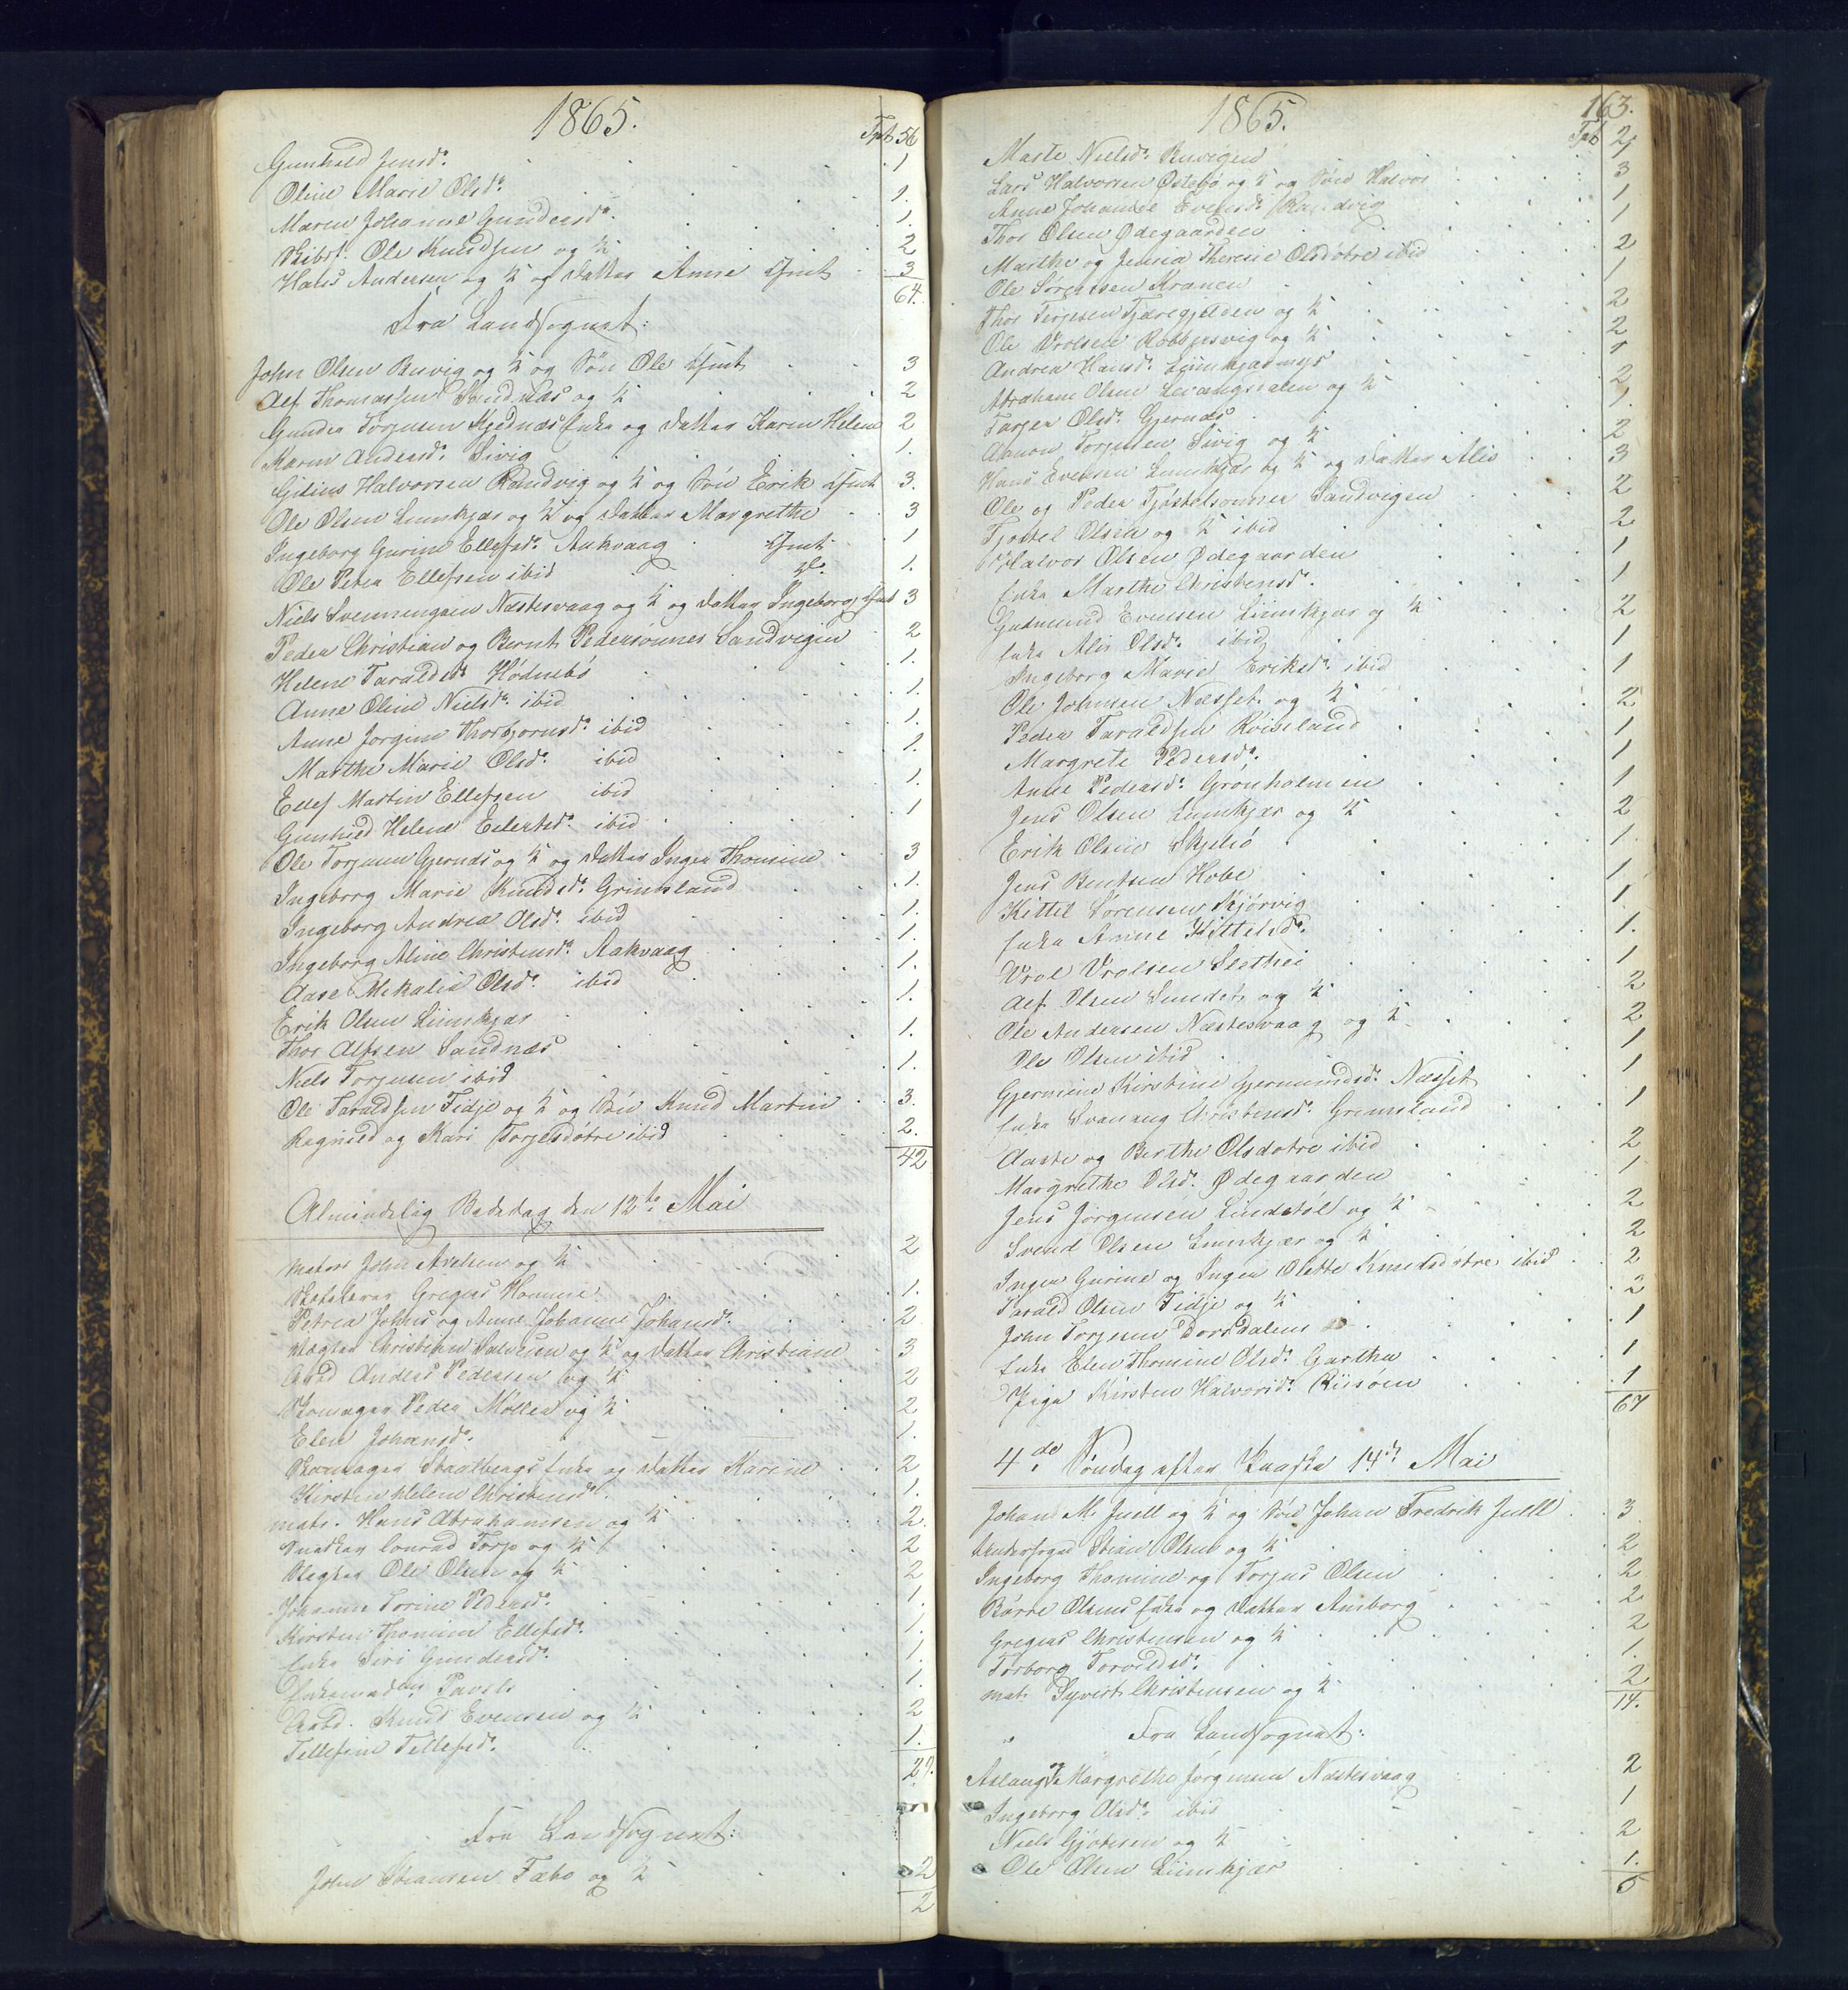 1865.
Tpt 56
Gunhild Jensd. 1
Oline Marie Olsd. 1.
Maren Johanne Gundersd. 1.
Skibst. Ole Knudsen og K 2
Hans Andersen og K og Datter Anne 3
64.
Fra Landsognet:
John Olsen Buvig og K og Søn Ole 3
Alf Thomassen Sandnæs og K 2
Gunder Torjusen Skjednæs Enke og Datter Karen Helene 2
Maren Andersd. Sivig 1.
Gjelius Halvorsen Randvig og K og Søn Erik 3.
Ole Olsen Limkjær og K og Datter Margrethe 3
Ingeborg Gurine Ellefsd. Aakvaag 1
Ole Peter Ellefsen ibid 1.
Niels Svenningsen Næstesvaag og K og Datter Ingeborg 3
Peder Christian og Bernt Pedersønner Sandvigen 2
Helene Taraldsd. Hødnebø 1.
Anne Oline Nielsd. ibid 1.
Anne Jorgine Thorbjornsd. ibid 1.
Marthe Marie Olsd. ibid 1.
Ellef Martin Ellefsen ibid 1.
Gunhild Helene Eilertsd. ibid 1
Ole Torjusen Gjernæs og K og Datter Inger Thomine 3
Ingeborg Marie Knudsd. Grimsland 1.
Ingeborg Andrea Olsd. ibid 1.
Ingeborg Aline Christensd. Aakvaag 1.
Aase Mekalia Olsd. ibid 1.
Erik Olsen Limkjær 1.
Thor Alfsen Sandnæs 1.
Niels Torjusen ibid 1.
Ole Taraldsen Fidje og K og Søn Knud Martin 3.
Ragnild og Kari Torjesdøtre ibid 2.
42
Almindelig Bededag den 12te Mai
Matros John Axelsen og K 2
Gregers Homme 1.
Petrea Johns og Anne Johanne Johansd. 2
Vægter Christian Salvesen og K og Datter Christiane 3
Arbd Anders Pedersen og K 2
Skomager Peder Møller og K 2
Elen Johansd. 1.
Skomager Stavlbergs Enke og Datter Karine 2
Kirsten Helene Christensd. 1.
mats. Hans Abrahamsen og K 2.
Snedker Conrad Torp og K 2
Vægter Ole Olsen og K 2
Johanne Torine Pedersd. 1.
Kirsten Thomine Ellefsd. 1.
Enke Siri Gundersd. 1.
Enkemadm Povels 1.
Arbd. Knud Evensen og K 2
Tellefine Tellefsd. 1.
29.
Fra Landsognet:
John Stiansen Fæbo og K 2
2
1865.
163.
Tpt 2
Marte Nielsd. Buvigen 1
Lars Halvorsen Østebø og K og Søn Halvor 3
Anne Johanne Evensd. Randvig 1
Thor Olsen Ødegaarden 1
Marthe og Jensia Theresie Olsdøtre ibid 2
Ole Sørensen Kranen 1
Thor Terjesen Tjæregjelden og K 2
Ole Vrolsen Robbersvig og K 2
Andrea Hansd. Limkjærmyr 1
Abraham Olsen Levangsdalen og K 2
Torger Olsd. Gjernæs 1.
Amon Torjusen Sivig og K 2
Hans Evensen Limkjær og K og Datter Alis 3
Ole og Peder Tjøstelsønner Sandvigen 2
Tjøstel Olsen og K ibid 2
Halvor Olsen Ødegaarden 1
Enke Marthe Christensd. 1
Gudmund Evensen Limkjær og K 2
Enke Alis Olsd. ibid 1
Ingeborg Marie Eriksd. ibid 1
Ole Johnsen Næsset og K 2
Peder Taraldsen Kviseland 1
Margrete Pedersd. 1
Anne Pedersd. Gronholmen 1
Jens Olsen Limkjær og K 2
Erik Olsen Skjelsø 1.
Jens Bentsen Hobe 1
Kittel Sørensen Skjørvig 1
Enke Anne Kittelsd. 1.
Vrol Vrolsen Slethei 1
Alf Olsen Sundet og K 2
Ole Andersen Næstesvaag og K 2
Ole Olsen ibid 1
Gjermine Kirstine Gjermundsd. Næsset 1
Enke Svanaug Christensd. Grimsland 1
Aaste og Berthe Olsdøtre ibid 2
Margrethe Olsd. Ødegaarden 1
Jens Jørgensen Lindstøl og K 2
Svend Olsen Limkjær og K 2
Inger Gurine og Inger Olette Knudsdøtre ibid 2
Tarald Olsen Fidje og K 2
John Torjusen Dorsdalen 1
Enke Elen Thomine Olsd. Garthe 1
Pige Kirsten Halvorsd. Risøen 1
67
4de Søndag efter Paaske 14de Mai
Johan M. Juell og K og Søn Johan Fredrik Juell 3
Underfoged Stian Olsen og K 2
Ingeborg Thomine og Torjus Olsen 2
Børre Olsens Enke og Datter Amborg 2
Gregers Christensen og K 2
Torborg Torvildsd. 1.
mat. Syvert Christensen og K 2
14.
Fra Landsognet:
Aslaug og Margrethe Jørgensen Næstesvaag 2
Ingeborg Olsd. ibid 1
Niels Gjøtesen og K 2
Ole Olsen Limkjær 1.
5